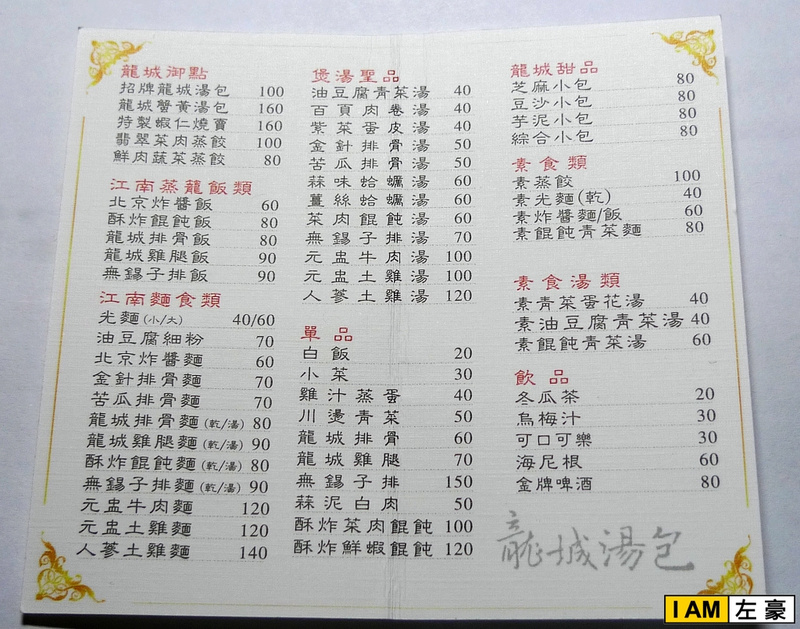 龍城御點
招牌龍城湯包 100
龍城蟹黃湯包 160
特製蝦仁燒賣 160
翡翠菜肉蒸餃 100
鮮肉蔬菜蒸餃 80
江南蒸籠飯類
北京炸醬飯 60
酥炸餛飩飯 80
龍城排骨飯 80
龍城雞腿飯 90
無錫子排飯 90
江南麵食類
光麵(小/大) 40/60
油豆腐細粉 70
北京炸醬麵 60
金針排骨麵 70
苦瓜排骨麵 70
龍城排骨麵(乾/湯) 80
龍城雞腿麵(乾/湯) 90
酥炸餛飩麵(乾/湯) 80
無錫子排麵(乾/湯) 90
元盅牛肉麵 120
元盅土雞麵 120
人蔘土雞麵 140
煲湯聖品
油豆腐青菜湯 40
百頁肉卷湯 40
紫菜蛋皮湯 40
金針排骨湯 50
苦瓜排骨湯 50
蒜味蛤蠣湯 60
薑絲蛤蠣湯 60
菜肉餛飩湯 60
無錫子排湯 70
元盅牛肉湯 100
元盅土雞湯 100
人蔘土雞湯 120
單品
白飯 20
小菜 30
雞汁蒸蛋 40
川燙青菜 50
龍城排骨 60
龍城雞腿 70
無錫子排 150
蒜泥白肉 50
酥炸菜肉餛飩 100
酥炸鮮蝦餛飩 120
龍城甜品
芝麻小包 80
豆沙小包 80
芋泥小包 80
綜合小包 80
素食類
素蒸餃 100
素光麵(乾) 40
素炸醬麵/飯 60
素餛飩青菜麵 80
素食湯類
素青菜蛋花湯 40
素油豆腐青菜湯 40
素餛飩青菜湯 60
飲品
冬瓜茶 20
烏梅汁 30
可口可樂 30
海尼根 60
金牌啤酒 80
龍城湯包
I AM 左豪